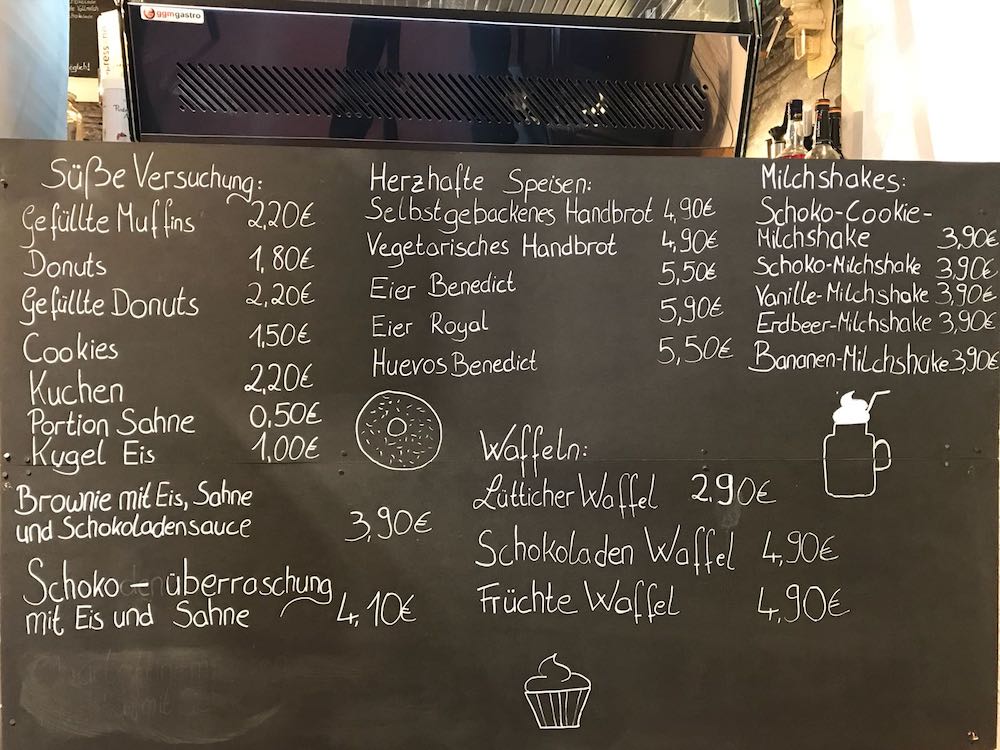 ggmgastro
Süße Versuchung:
Gefüllte Muffins 2,20€
Donuts 1,80€
Gefüllte Donuts 2,20€
Cookies 1,50€
Kuchen 2,20€
Portion Sahne 0,50€
Kugel Eis 1,00€
Brownie mit Eis, Sahne
und Schokoladensauce 3,90€
Schoko-überraschung
mit Eis und Sahne 4,10€
Herzhafte Speisen:
Selbstgebackenes Handbrot 4,90€
Vegetarisches Handbrot 4,90€
Eier Benedict 5,50€
Eier Royal 5,90€
Huevos Benedict 5,50€
Waffeln:
Lütticher Waffel 2.90€
Schokoladen Waffel 4,90€
Früchte Waffel 4,90€
Milchshakes:
Schoko-Cookie-
Milchshake 3,90€
Schoko-Milchshake 3,90€
Vanille-Milchshake 3,90€
Erdbeer-Milchshake 3,90€
Bananen-Milchshake 3,90€